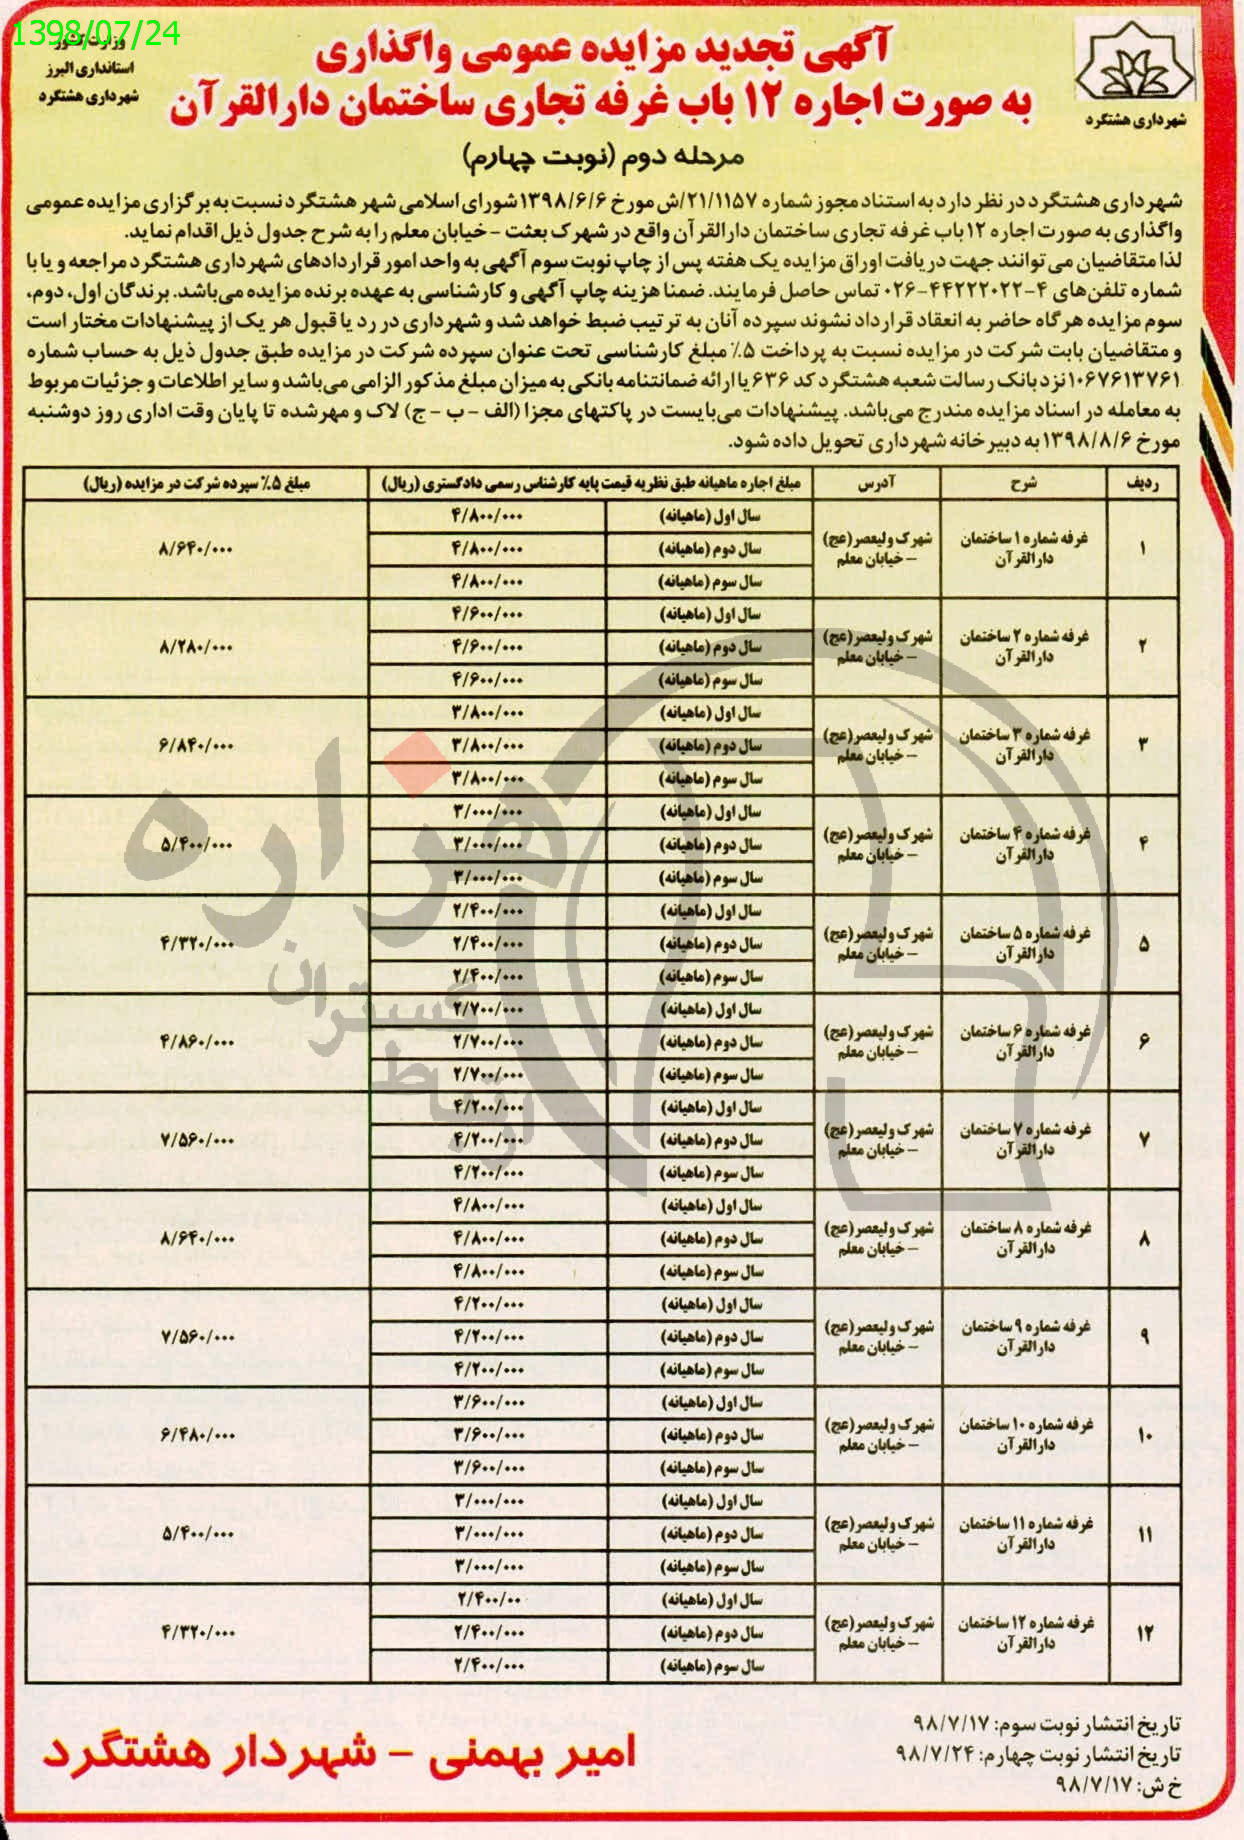 1398/07/24
وزارت کشور
استانداری البرز
شهرداری هشتگرد
شهرداری هشتگرد
آگهی تجدید مزایده عمومی واگذاری
به صورت اجاره ۱۲ باب غرفه تجاری ساختمان دارالقرآن
مرحله دوم (نوبت چهارم)
شهرداری هشتگرد در نظر دارد به استناد مجوز شماره ۲۱/۱۱۵۷/ش مورخ ۱۳۹۸/۶/۶ شورای اسلامی شهر هشتگرد نسبت به برگزاری مزایده عمومی
واگذاری به صورت اجاره ۱۲ باب غرفه تجاری ساختمان دارالقرآن واقع در شهرک بعثت – خیابان معلم را به شرح جدول ذیل اقدام نماید.
لذا متقاضیان می توانند جهت دریافت اوراق مزایده یک هفته پس از چاپ نوبت سوم آگهی به واحد امور قراردادهای شهرداری هشتگرد مراجعه و یا با
شماره تلفن‌های ۴-۴۴۲۲۲۰۲۲-۰۲۶ تماس حاصل فرمایند. ضمنا هزینه چاپ آگهی و کارشناسی به عهده برنده مزایده می‌باشد. برندگان اول، دوم،
سوم مزایده هر گاه حاضر به انعقاد قرارداد نشوند سپرده آنان به ترتیب ضبط خواهد شد و شهرداری در رد یا قبول هر یک از پیشنهادات مختار است
و متقاضیان بابت شرکت در مزایده نسبت به پرداخت ۵٪ مبلغ کارشناسی تحت عنوان سپرده شرکت در مزایده طبق جدول ذیل به حساب شماره
۱۰۶۷۶۱۳۷۶۱ نزد بانک رسالت شعبه هشتگرد کد ۶۳۶ یا ارائه ضمانتنامه بانکی به میزان مبلغ مذکور الزامی می‌باشد و سایر اطلاعات و جزئیات مربوط
به معامله در اسناد مزایده مندرج می‌باشد. پیشنهادات می‌بایست در پاکتهای مجزا (الف – ب – ج) لاک و مهرشده تا پایان وقت اداری روز دوشنبه
مورخ ۱۳۹۸/۸/۶ به دبیرخانه شهرداری تحویل داده شود.
ردیف شرح آدرس مبلغ اجاره ماهیانه طبق نظریه قیمت پایه کارشناس رسمی دادگستری (ریال) مبلغ ۵٪ سپرده شرکت در مزایده (ریال)
سال اول (ماهیانه) ۴/۸۰۰/۰۰۰
۱ غرفه شماره ۱ ساختمان دارالقرآن شهرک ولیعصر(عج) – خیابان معلم سال دوم (ماهیانه) ۴/۸۰۰/۰۰۰ ۸/۶۴۰/۰۰۰
سال سوم (ماهیانه) ۴/۸۰۰/۰۰۰
سال اول (ماهیانه) ۴/۶۰۰/۰۰۰
۲ غرفه شماره ۲ ساختمان دارالقرآن شهرک ولیعصر(عج) – خیابان معلم سال دوم (ماهیانه) ۴/۶۰۰/۰۰۰ ۸/۲۸۰/۰۰۰
سال سوم (ماهیانه) ۴/۶۰۰/۰۰۰
سال اول (ماهیانه) ۳/۸۰۰/۰۰۰
۳ غرفه شماره ۳ ساختمان دارالقرآن شهرک ولیعصر(عج) – خیابان معلم سال دوم (ماهیانه) ۳/۸۰۰/۰۰۰ ۶/۸۴۰/۰۰۰
سال سوم (ماهیانه) ۳/۸۰۰/۰۰۰
سال اول (ماهیانه) ۳/۰۰۰/۰۰۰
۴ غرفه شماره ۴ ساختمان دارالقرآن شهرک ولیعصر(عج) – خیابان معلم سال دوم (ماهیانه) ۳/۰۰۰/۰۰۰ ۵/۴۰۰/۰۰۰
سال سوم (ماهیانه) ۳/۰۰۰/۰۰۰
سال اول (ماهیانه) ۲/۴۰۰/۰۰۰
۵ غرفه شماره ۵ ساختمان دارالقرآن شهرک ولیعصر(عج) – خیابان معلم سال دوم (ماهیانه) ۲/۴۰۰/۰۰۰ ۴/۳۲۰/۰۰۰
سال سوم (ماهیانه) ۲/۴۰۰/۰۰۰
سال اول (ماهیانه) ۲/۷۰۰/۰۰۰
۶ غرفه شماره ۶ ساختمان دارالقرآن شهرک ولیعصر(عج) – خیابان معلم سال دوم (ماهیانه) ۲/۷۰۰/۰۰۰ ۴/۸۶۰/۰۰۰
سال سوم (ماهیانه) ۲/۷۰۰/۰۰۰
سال اول (ماهیانه) ۴/۲۰۰/۰۰۰
۷ غرفه شماره ۷ ساختمان دارالقرآن شهرک ولیعصر(عج) – خیابان معلم سال دوم (ماهیانه) ۴/۲۰۰/۰۰۰ ۷/۵۶۰/۰۰۰
سال سوم (ماهیانه) ۴/۲۰۰/۰۰۰
سال اول (ماهیانه) ۴/۸۰۰/۰۰۰
۸ غرفه شماره ۸ ساختمان دارالقرآن شهرک ولیعصر(عج) – خیابان معلم سال دوم (ماهیانه) ۴/۸۰۰/۰۰۰ ۸/۶۴۰/۰۰۰
سال سوم (ماهیانه) ۴/۸۰۰/۰۰۰
سال اول (ماهیانه) ۴/۲۰۰/۰۰۰
۹ غرفه شماره ۹ ساختمان دارالقرآن شهرک ولیعصر(عج) – خیابان معلم سال دوم (ماهیانه) ۴/۲۰۰/۰۰۰ ۷/۵۶۰/۰۰۰
سال سوم (ماهیانه) ۴/۲۰۰/۰۰۰
سال اول (ماهیانه) ۳/۶۰۰/۰۰۰
۱۰ غرفه شماره ۱۰ ساختمان دارالقرآن شهرک ولیعصر(عج) – خیابان معلم سال دوم (ماهیانه) ۳/۶۰۰/۰۰۰ ۶/۴۸۰/۰۰۰
سال سوم (ماهیانه) ۳/۶۰۰/۰۰۰
سال اول (ماهیانه) ۳/۰۰۰/۰۰۰
۱۱ غرفه شماره ۱۱ ساختمان دارالقرآن شهرک ولیعصر(عج) – خیابان معلم سال دوم (ماهیانه) ۳/۰۰۰/۰۰۰ ۵/۴۰۰/۰۰۰
سال سوم (ماهیانه) ۳/۰۰۰/۰۰۰
سال اول (ماهیانه) ۲/۴۰۰/۰۰
۱۲ غرفه شماره ۱۲ ساختمان دارالقرآن شهرک ولیعصر(عج) – خیابان معلم سال دوم (ماهیانه) ۲/۴۰۰/۰۰۰ ۴/۳۲۰/۰۰۰
سال سوم (ماهیانه) ۲/۴۰۰/۰۰۰
هزاره
گستران
ارتباط
تاریخ انتشار نوبت سوم: ۹۸/۷/۱۷
تاریخ انتشار نوبت چهارم: ۹۸/۷/۲۴
خ ش: ۹۸/۷/۱۷
امیر بهمنی – شهردار هشتگرد